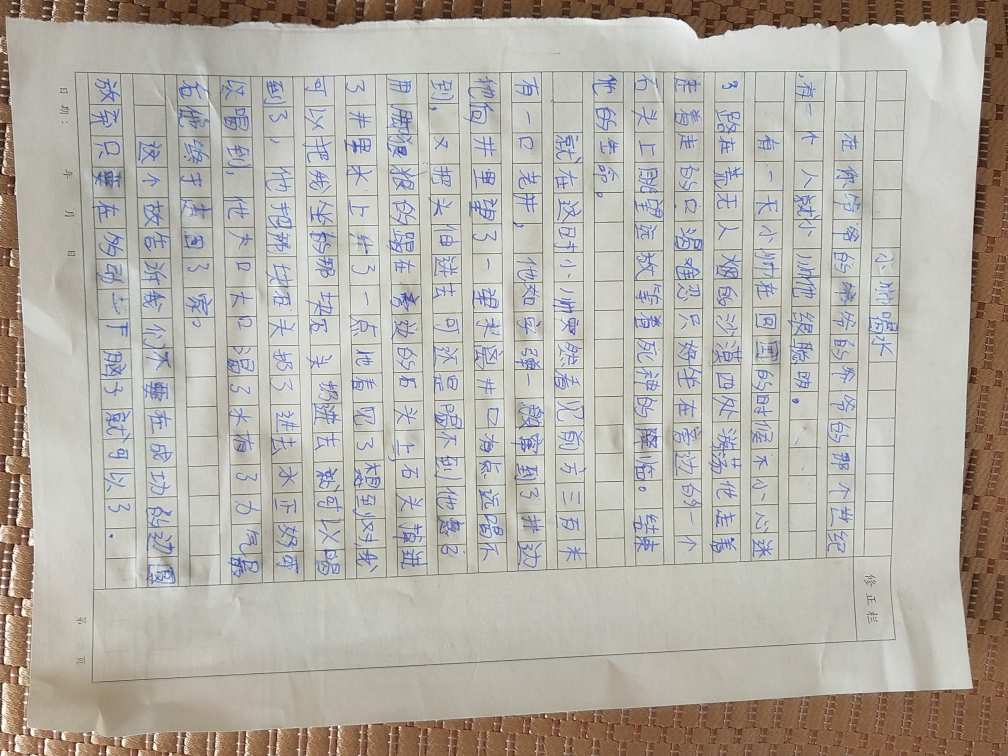 小帅喝水
在你爷爷的爷爷的爷爷的那个世纪
有一个人就小帅他很聪明。
有一天小帅在回国的时候不小心迷
了路在荒无人烟的沙漠四处游荡他走着
走着走的口渴难忍只好坐在旁边的一个
石头上眺望远放等着死神的降临。结束
他的生命。
就在这时小帅突然看见前方三百米
有一口老井，他如字弹一般窜到了井边
他向井里望了一望水离井口有点远喝不
到，又把头伸进去可还是喝不到他急了
用脚狠狠的踢在旁放的石头上石头掉进
了井里水上升了一点他看见了想到啊我
可以把我坐的那块石头扔进去就可以喝
到了，他把那块石头扔了进去水正好可
以喝到，他大口大口喝了水有了力气最
后他终于走回了家。
这个故告诉我们不要在成功的边
放弃只要在多动一下脑子就可以了.
修正栏
日期： 年 月 日
第 页